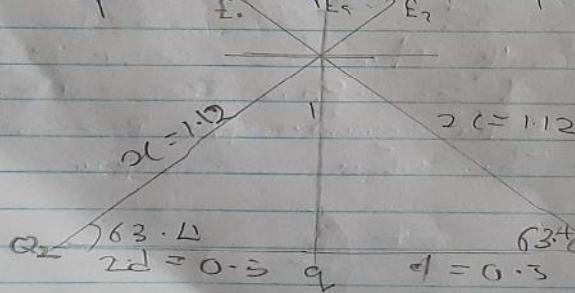 E. E9 E2
x = 1.12
1
x = 1.12
Q2 63.4 63.4
2d = 0.5 q d = 0.5